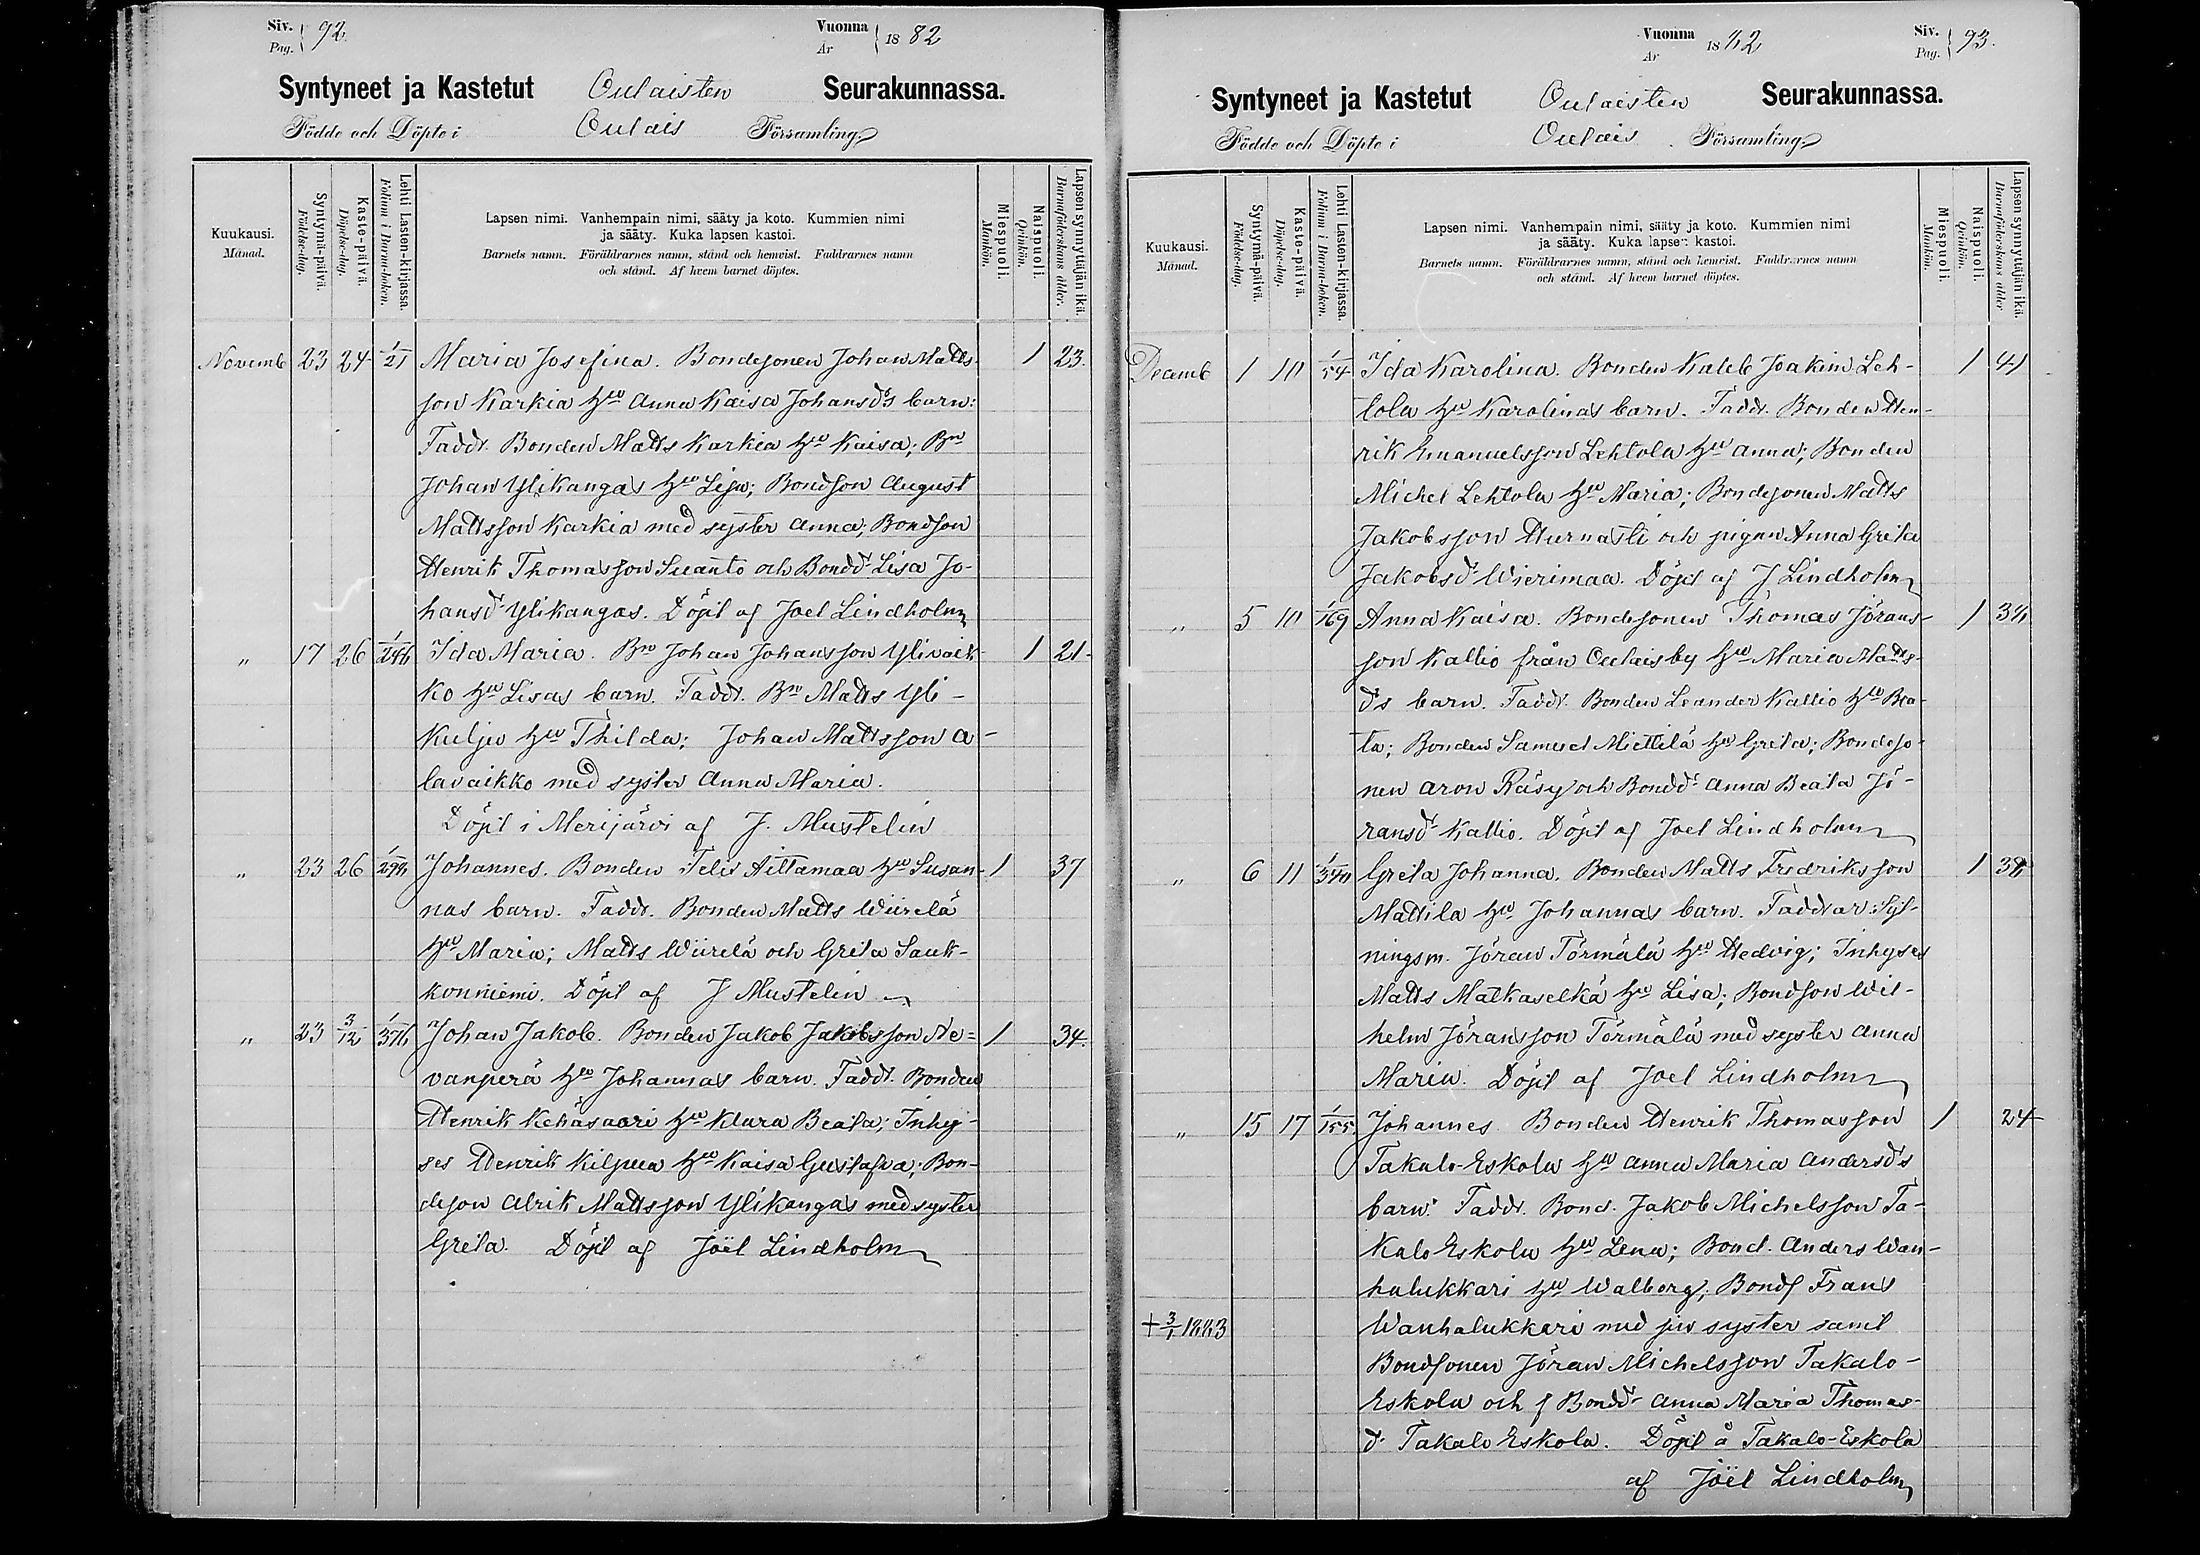 Siv. Pag. 92.
Vuonna År 18 82
Syntyneet ja Kastetut Oulaisten Seurakunnassa.
Födde och Döpte i Oulais Församling
Kuukausi. Månad.
Syntymä-päivä. Födelse-dag.
Kaste-päivä. Döpelse-dag.
Lehti Lasten-kirjassa. Folium i Barna-boken.
Lapsen nimi. Vanhempain nimi, sääty ja koto. Kummien nimi
ja sääty. Kuka lapsen kastoi.
Barnets namn. Föräldrarnes namn, stånd och hemvist. Faddrarnes namn
och stånd. Af hvem barnet döptes.
Miespuoli. Mankön.
Naispuoli. Qvinkön.
Lapsen synnyttäjän ikä. Barnaföderskans ålder.
Novemb 23 24 1/21 Maria Josefina. Bondesonen Johan Matts- 1 23.
son Karkia hu Anna Kaisa Johansd:s barn:
Faddr. Bonden Matts Karkia hu Kaisa; Bn
Johan Ylikangas hu Lisa; Bondson August
Mattsson Karkia med syster Anna; Bondson
Henrik Thomasson Suanto och Bondd. Lisa Jo-
hansd. Ylikangas. Döpt af Joel Lindholm
„ 17 26 Ida Maria. Bn Johan Johansson Ylivaik- 1 21
ko hu Lisas barn. Faddr. Bn Matts Yli-
kulju hu Thilda; Johan Mattsson A-
lavaikko med syster Anna Maria.
Döpt i Merijärvi af J. Mustelin
„ 23 26 Johannes. Bonden Felix Aittamaa hu Susan- 1 37
nas barn. Faddr. Bonden Matts Wiirelä
hu Maria; Matts Wiirelä och Greta Sauk-
konniemi. Döpt af J Mustelin
„ 23 3/12 1/376 Johan Jakob. Bonden Jakob Jakobsson Ne= 1 34.
vanperä hu Johannas barn. Faddr. Bonden
Henrik Kehäsaari hu Klara Beata; Inhy-
ses Henrik Kilpua hu Kaisa Gustafva; Bon-
deson Alrik Mattsson Ylikangas med syster
Greta. Döpt af Joël Lindholm
Vuonna År 18 82
Siv. Pag. 93.
Syntyneet ja Kastetut Oulaisten Seurakunnassa.
Födde och Döpte i Oulais Församling
Kuukausi. Månad.
Syntymä-päivä. Födelse-dag.
Kaste-päivä. Döpelse-dag.
Lehti Lasten-kirjassa. Folium i Barna-boken.
Lapsen nimi. Vanhempain nimi, sääty ja koto. Kummien nimi
ja sääty. Kuka lapsen kastoi.
Barnets namn. Föräldrarnes namn, stånd och hemvist. Faddrarnes namn
och stånd. Af hvem barnet döptes.
Miespuoli. Mankön.
Naispuoli. Qvinkön.
Lapsen synnyttäjän ikä. Barnaföderskans ålder
Decemb 1 10 1/54 Ida Karolina. Bonden Kaleb Joakim Leh- 1 41
tola hu Karolinas barn. Faddr. Bonden Hen-
rik Emanuelsson Lehtola hu Anna; Bonden
Michel Lehtola hu Maria; Bondesonen Matts
Jakobsson Hurnasti och pigan Anna Greta
Jakobsd. Wierimaa. Döpt af J Lindholm
„ 5 10 1/169 Anna Kaisa. Bondesonen Thomas Jörans- 1
son Kallio från Oulaisby hu Maria Matts-
d:s barn. Faddr. Bonden Leander Kallio hu Bea-
ta; Bonden Samuel Miettilä hu Greta; Bondeso-
nen Aron Räsy och Bondd. Anna Beata Jö-
ransd. Kallio. Döpt af Joel Lindholm
„ 6 11 1/340 Greta Johanna. Bonden Matts Fredriksson 1 38
Mattila hu Johannas barn. Faddrar: Syt-
ningsm. Jöran Törmälä hu Hedvig; Inhyses
Matts Matkaselkä hu Lisa; Bondson Wil-
helm Jöransson Törmälä med syster Anna
Maria. Döpt af Joel Lindholm
„ 15 17 1/155 Johannes Bonden Henrik Thomasson 1 24
Takalo-Eskola hu Anna Maria Andersd:s
barn. Faddr. Bond. Jakob Michelsson Ta-
kalo Eskola hu Lena; Bond. Anders Wan-
halukkari hu Walborg; Bonds Frans
+ 3/1 1883 Wanhalukkari med sin syster samt
Bondsonen Jöran Michelsson Takalo-
Eskola och f Bondd. Anna Maria Thomas-
d. Takalo Eskola. Döpt å Takalo-Eskola
af Joël Lindholm